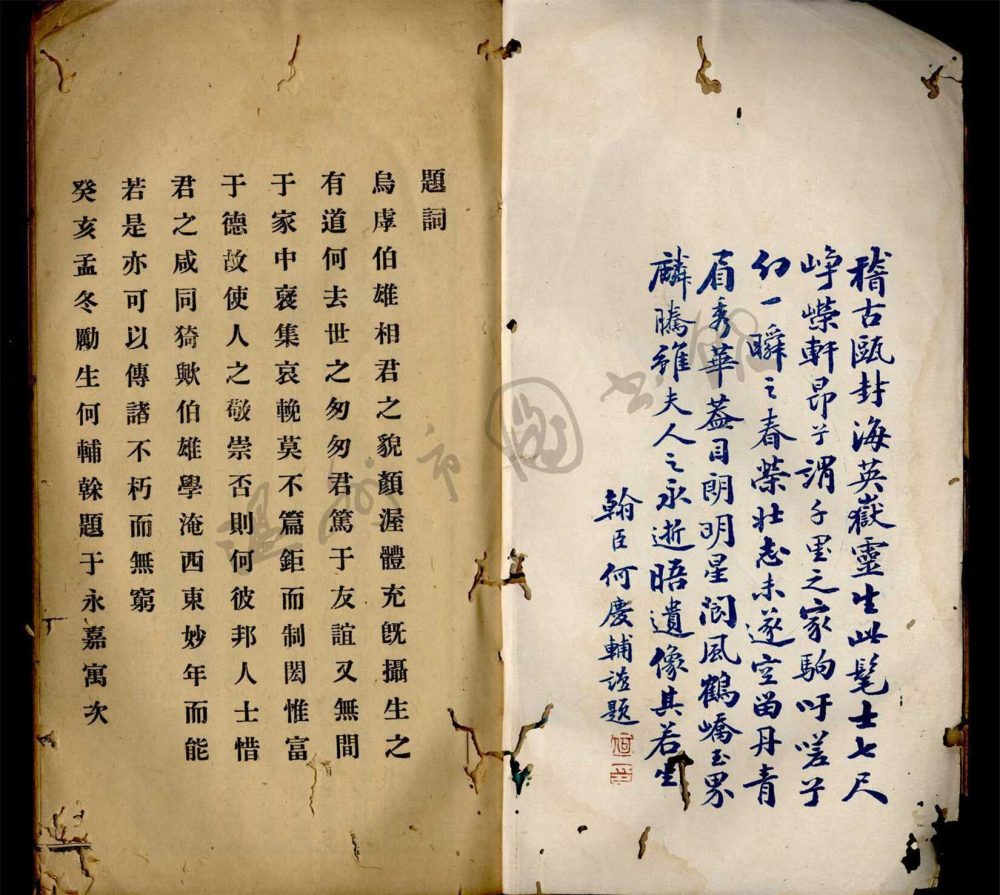 稽古甌封海英嶽靈生此髦士七尺
崢嶸軒昂兮謂千里之家駒吁嗟兮
幻一瞬之春榮壯志未遂空留丹青
眉秀華蓋目朗明星閬風鶴嶠玉界
麟騰雖夫人之永逝晤遺像其若生
翰臣何慶輔謹題
題詞
烏虖伯雄相君之貌顏渥體充旣攝生之
有道何去世之匆匆君篤于友誼又無間
于家中裒集哀輓莫不篇鉅而制閎惟富
于德故使人之敬崇否則何彼邦人士惜
君之咸同猗歟伯雄學淹西東妙年而能
若是亦可以傳諸不朽而無窮
癸亥孟冬勵生何輔榦題于永嘉寓次
溫州市圖書館